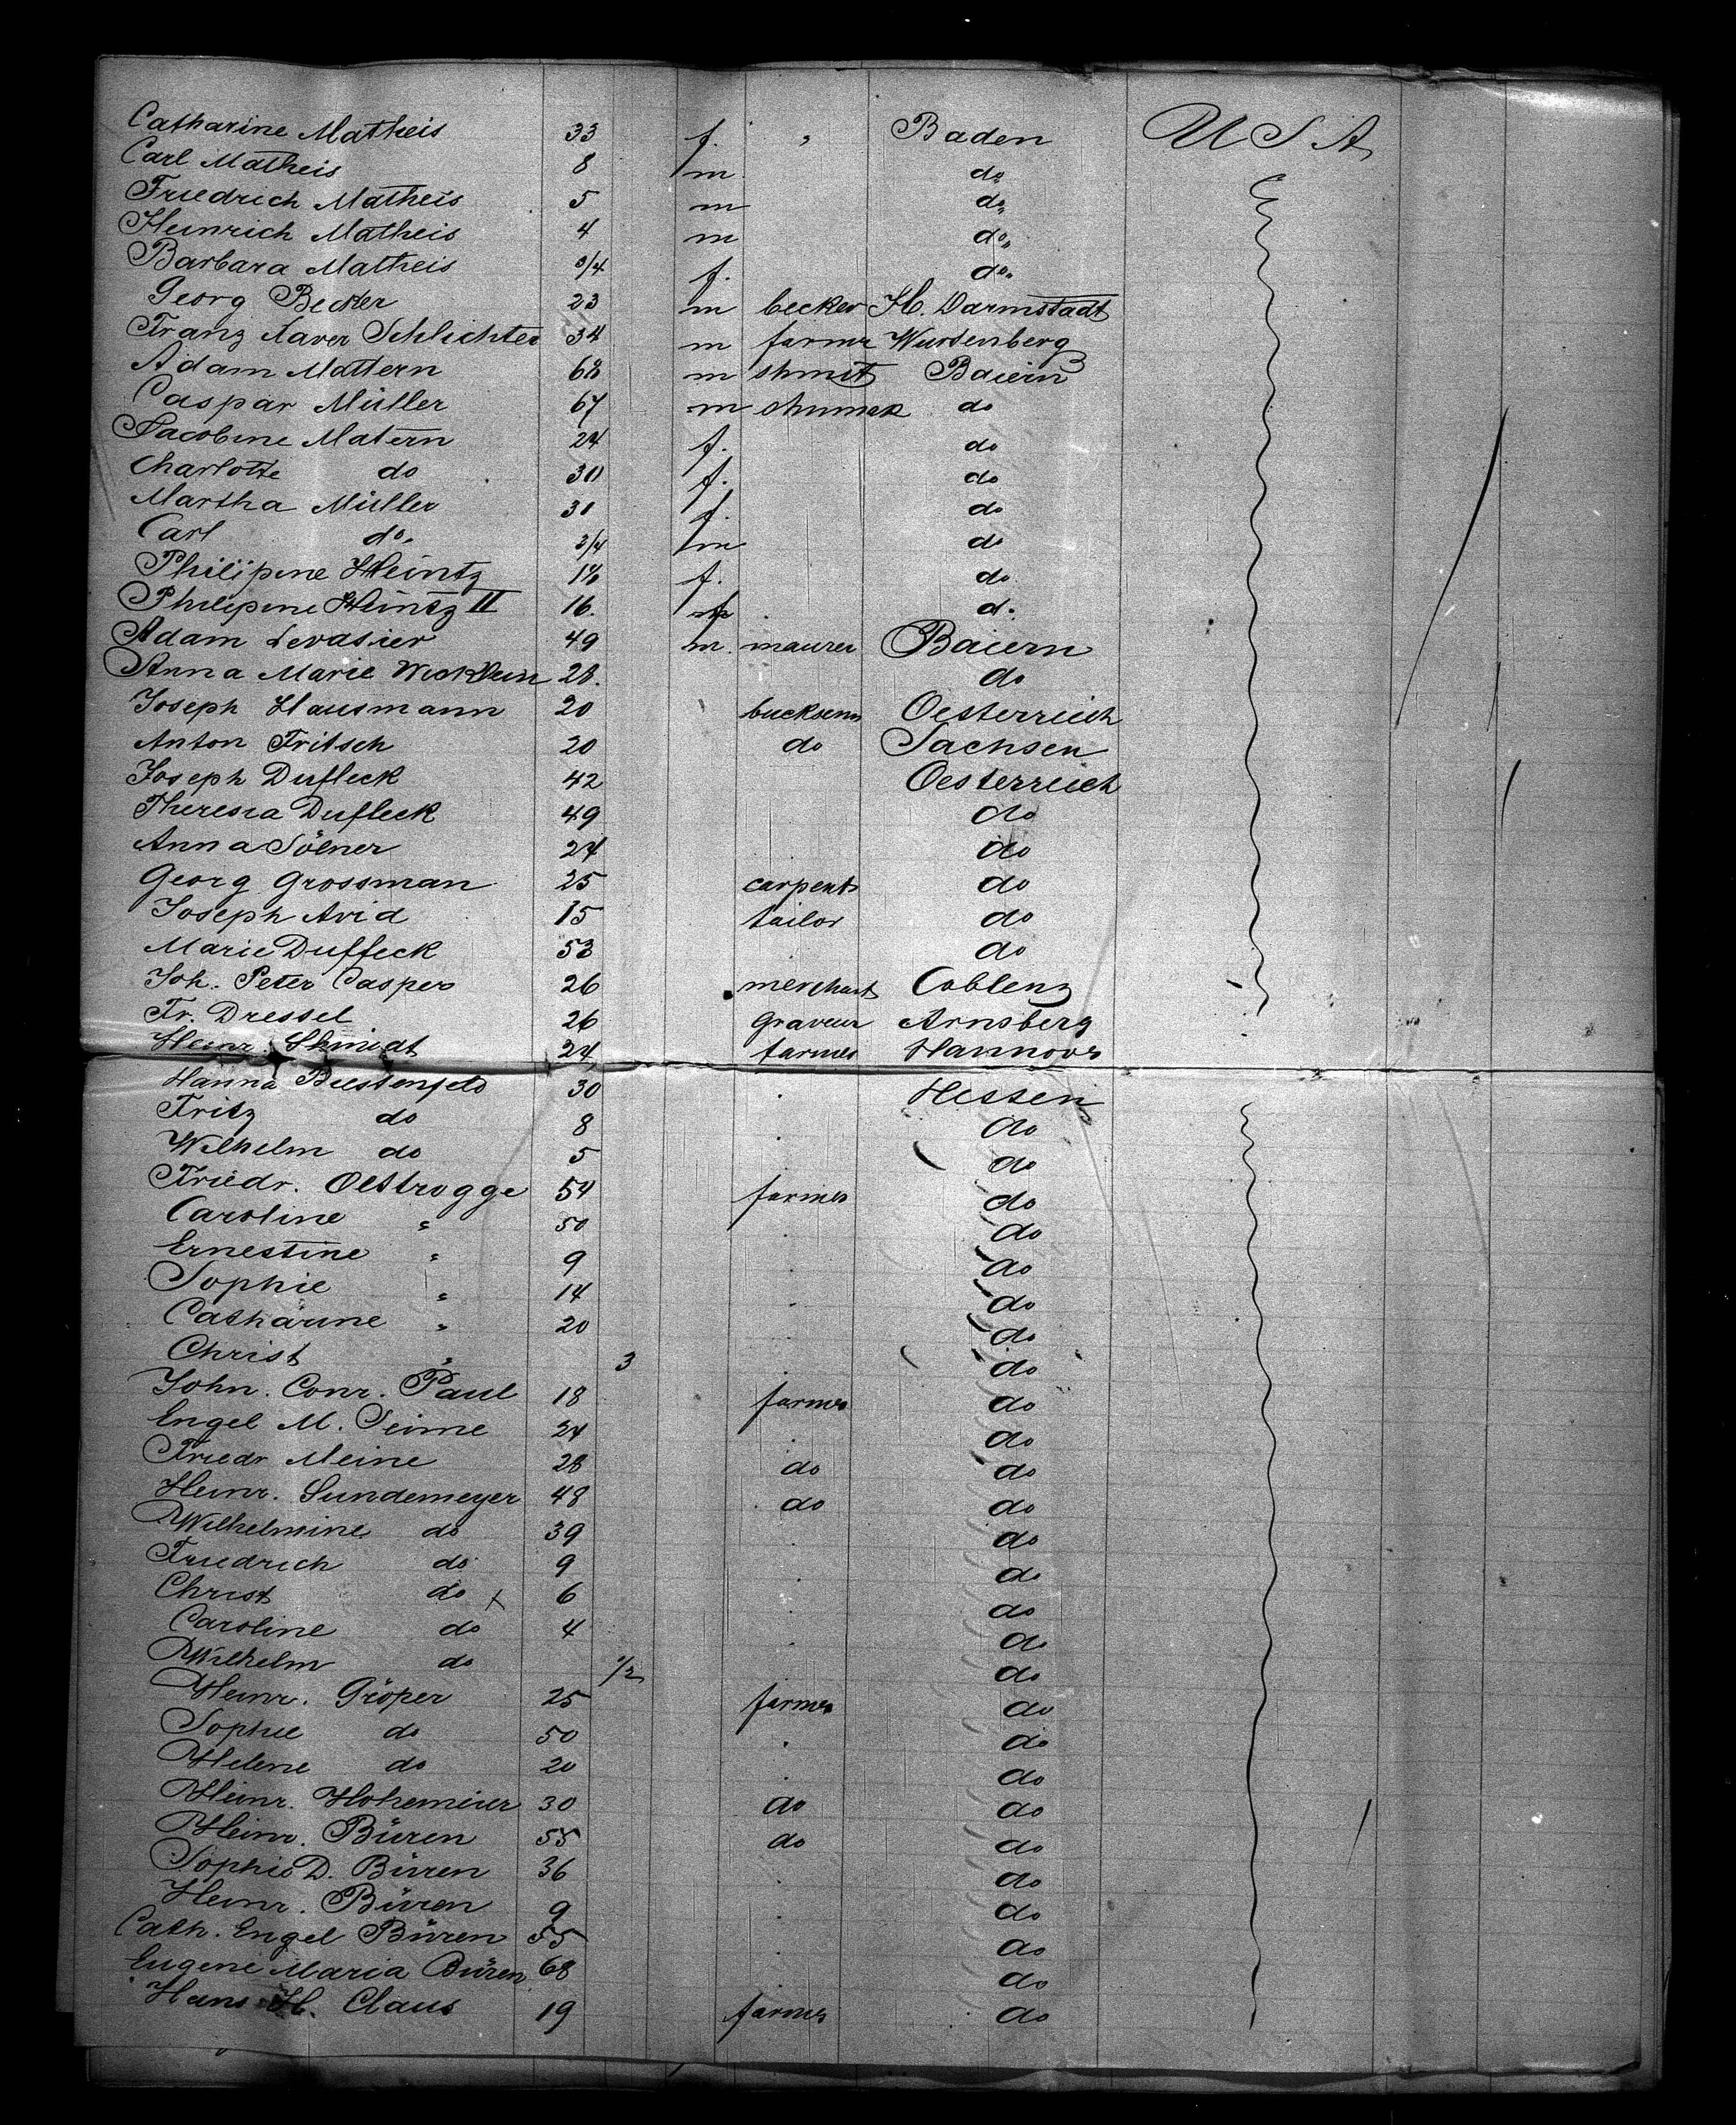 Catharine Matheis 33 f. " Baden U S A
Carl Matheis 8 m do
Friedrich Matheis 5 m do
Heinrich Matheis 4 m do
Barbara Matheis 3/4 f. do
Georg Becker 23 m becker H. Darmstadt
Franz Xaver Schlichter 34 m farmr Wurtenberg
Adam Mattern 62 m shmit Baiern
Caspar Müller 67 m shumak do
Jacobine Matern 24 f. do
Charlotte do 30 f. do
Martha Müller 31 f. do
Carl do. 3/4 m do
Philipine Heintz f. do
Philipine Heintz II 16. do
Adam Levasier 49 m. maurer Baiern
Anna Marie 28. do
Joseph Hausmann 20 Oesterreich
Anton Fritsch 20 do Sachsen
Joseph Dufleck 42 Oesterreich
Theresia Dufleck 49 do
Anna Sölner 24 do
Georg Grossman 25 carpent do
Joseph Avid 15 tailor do
Marie Duffeck 53 do
Joh. Peter Casper 26 merchant Coblenz
Fr. Dressel 26 graveur Arnsberg
Heinr. Shmidt 24 farmer Hannover
Hanna Biestenfeld 30 Hessen
Fritz do 8 do
Wilhelm do 5 do
Friedr. Oestrogge 54 farmer do
Caroline " 50 do
Ernestine " 9 do
Sophie " 14 do
Catharine " 20 do
Christ " 3 do
John. Conr. Paul 18 farmer do
Engel M. Seime 24 do
Friedr Meine 28 do do
Heinr. Sundemeyer 48 do do
Wilhelmine do 39 do
Friedrich do 9 do
Christ do x 6 do
Caroline do 4 do
Wilhelm do 1/2 do
Heinr. Gröper 25 farmer do
Sophie do 50 do
Helene do 20 do
Heinr. Hohemeier 30 do do
Heinr. Büren 55 do do
Sophie D. Büren 36 do
Heinr. Büren 9 do
Cath. Engel Büren 55 do
Eugene Maria Büren 68 do
Hans H. Claus 19 farmer do